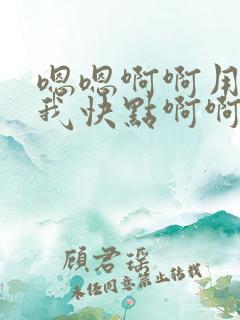 嗯嗯啊啊用
我快點啊啊
顧君瑶
未经同意禁止转载